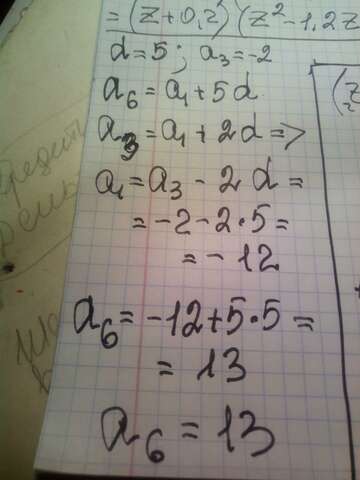 =(z+0,2)(z²-1,2z
d=5; a₃=-2
a₆=a₁+5d
a₃=a₁+2d=>
a₁=a₃-2d=
=-2-2·5=
=-12
a₆=-12+5·5=
=13
a₆=13
(z